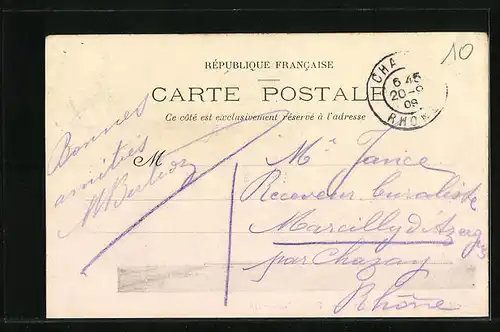 10
RÉPUBLIQUE FRANÇAISE
CARTE POSTALE
Ce côté est exclusivement réservé à l'adresse
CHA
6 45
20-9
09
RHONE
M
Bonnes
amitiés
Mr
Receveur buraliste
Marcilly d'Azergues
par Chazay
Rhône